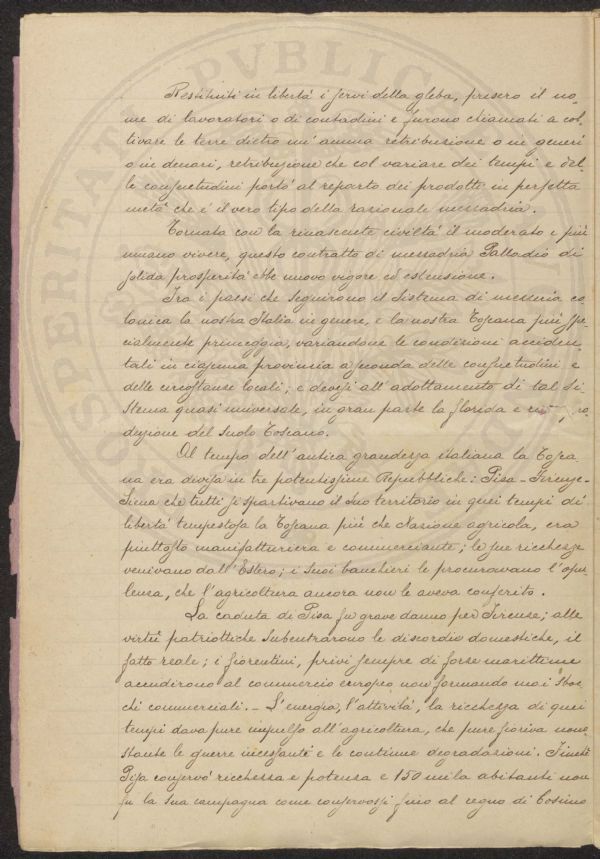 Restituiti in libertà i servi della gleba, presero il no=
me di lavoratori o di contadini e furono chiamati a col=
tivare le terre dietro un'annua retribuzione o in generi
o in denari, retribuzione che col variare dei tempi e del=
le consuetudini portò al reparto dei prodotti in perfetta
metà che è il vero tipo della razionale mezzadria.
Tornato con la rinascente civiltà il moderato e più
umano vivere, questo contratto di mezzadria Palladio di
solida prosperità ebbe nuovo vigore ed estensione.
Tra i paesi che seguirono il sistema di mezzeria co
lonica la nostra Italia in genere, e la nostra Toscana più spe
cialmente primeggia, variandone le condizioni acciden=
tali in ciascuna provincia a seconda delle consuetudini e
delle circostanze locali; e devesi all'adottamento di tal si=
stema quasi universale, in gran parte la florida e
duzione del suolo Toscano.
Al tempo dell'antica grandezza italiana la Tosca
na era divisa in tre potentissime Repubbliche: Pisa - Firenze -
Siena che tutti si spartivano il suo territorio in quei tempi di
libertà tempestosa la Toscana più che Nazione agricola, era
piuttosto manifatturiera e commerciante; le sue ricchezze
venivano dall'Estero; i suoi banchieri le procuravano l'opu
lenza, che l'agricoltura ancora non le aveva conferito.
La caduta di Pisa fu grave danno per Firenze; alle
virtù patriottiche subentrarono le discordie domestiche, il
fatto reale; i fiorentini, privi sempre di forze marittime
accudirono al commercio europeo non formando mai sboc
chi commerciali. - L'energia, l'attività, la ricchezza di quei
tempi dava pure impulso all'agricoltura, che pure fioriva nono
stante le guerre incessanti e le continue degradazioni. Finché
Pisa conservò ricchezza e potenza e 150 mila abitanti non
fu la sua campagna come conservossi fino al regno di Cosimo